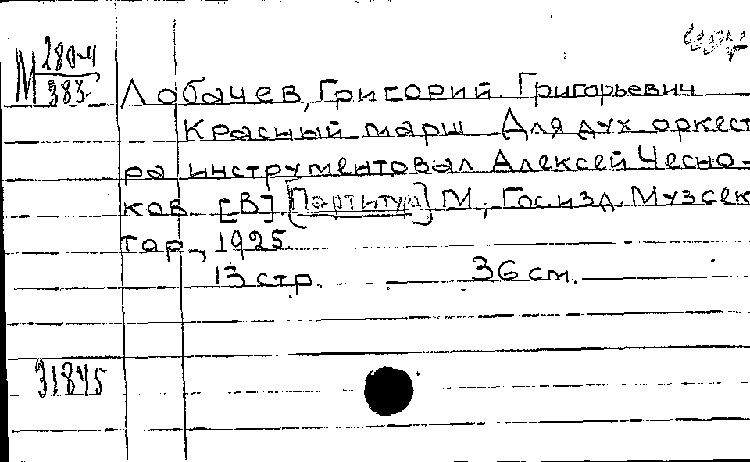 М 280-4
383
Лобачев, Григорий Григорьевич
Красный марш Для дух оркест
ра инструментовал Алексей Чесно-
ков [В] [Партитура] М, Госизд. Музсек
тор, 1925
13 стр. 36 см.
31845